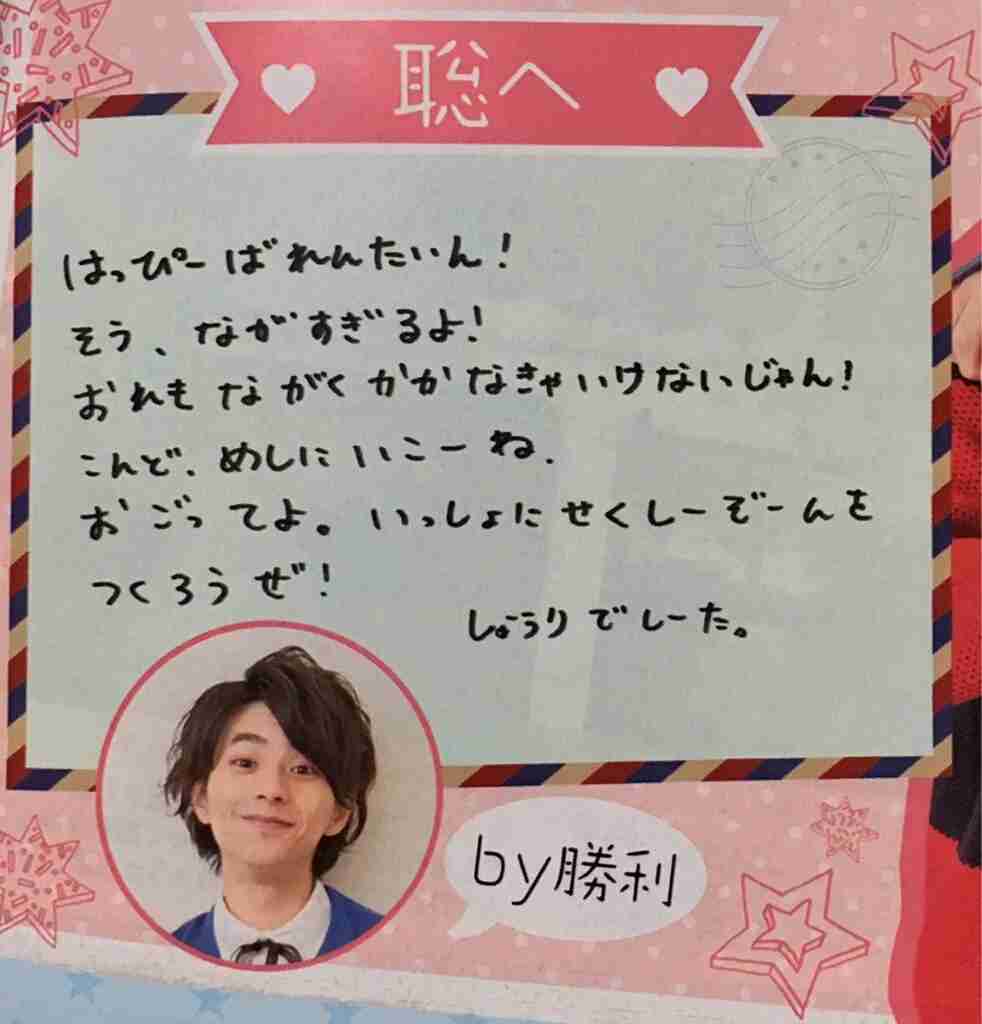 聡へ
はっぴーばれんたいん!
そう、ながすぎるよ!
おれもながくかかなきゃいけないじゃん!
こんど、めしにいこーね.
おごってよ。いっしょにせくしーぞーんを
つくろうぜ!
しょうりでしーた。
by勝利